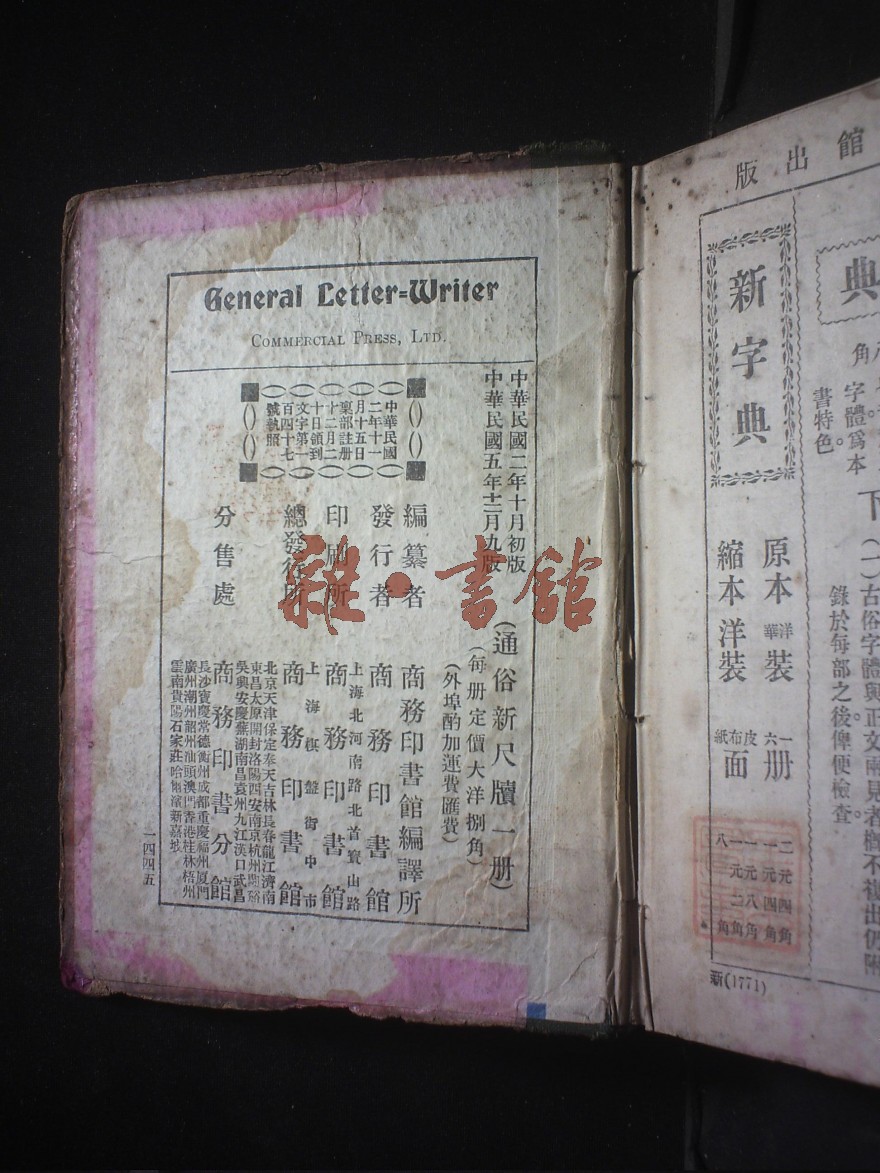 General Letter=Writer
COMMERCIAL PRESS, LTD.
中華民國二年十月初版
中華民國五年十二月九版
(通俗新尺牘一册)
(每册定價大洋捌角)
(外埠酌加運費匯費)
中華民國
二年十一
月十五日
稟部註册
十二月二
十日領到
文字第一
百四十七
號執照
編纂者 商務印書館編譯所
發行者 商務印書館
上海北河南路北首寶山路
印刷所 商務印書館
上海棋盤街中市
總發行所 商務印書館
北京天津保定奉天吉林長春龍江濟南
東昌太原開封洛陽西安南京杭州蘭谿
吳興安慶蕪湖南昌袁州九江漢口武昌
分售處 商務印書分館
長沙寶慶常德衡州成都重慶福州厦門
廣州潮州韶州汕頭澳門香港桂林梧州
雲南貴陽石家莊哈爾濱新嘉坡
一四四五
雜·書館
館出版
典
角
字體爲本
書特色。
下
(一)古俗字體與正文兩見者槪不複出仍附
錄於每部之後俾便檢查。
新字典
原本 華洋裝 一六册
縮本洋裝 紙布皮面
二元四角
一元四角
一元八角
一元二角
八角
新(1771)